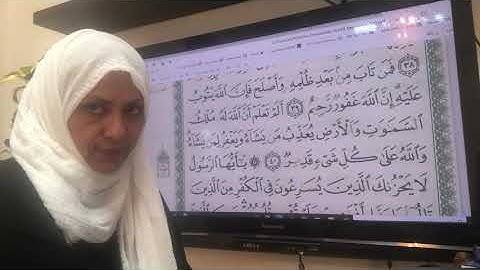 ٣٨ فَمَن تَابَ مِنۢ بَعْدِ ظُلْمِهِۦ وَأَصْلَحَ فَإِنَّ ٱللَّهَ يَتُوبُ
عَلَيْهِ إِنَّ ٱللَّهَ غَفُورٌ رَّحِيمٌ ٣٩ أَلَمْ تَعْلَمْ أَنَّ ٱللَّهَ لَهُۥ مُلْكُ
ٱلسَّمَٰوَٰتِ وَٱلْأَرْضِ يُعَذِّبُ مَن يَشَآءُ وَيَغْفِرُ لِمَن يَشَآءُ
وَٱللَّهُ عَلَىٰ كُلِّ شَىْءٍ قَدِيرٌ ٤٠ يَٰٓأَيُّهَا ٱلرَّسُولُ
لَا يَحْزُنكَ ٱلَّذِينَ يُسَٰرِعُونَ فِى ٱلْكُفْرِ مِنَ ٱلَّذِينَ